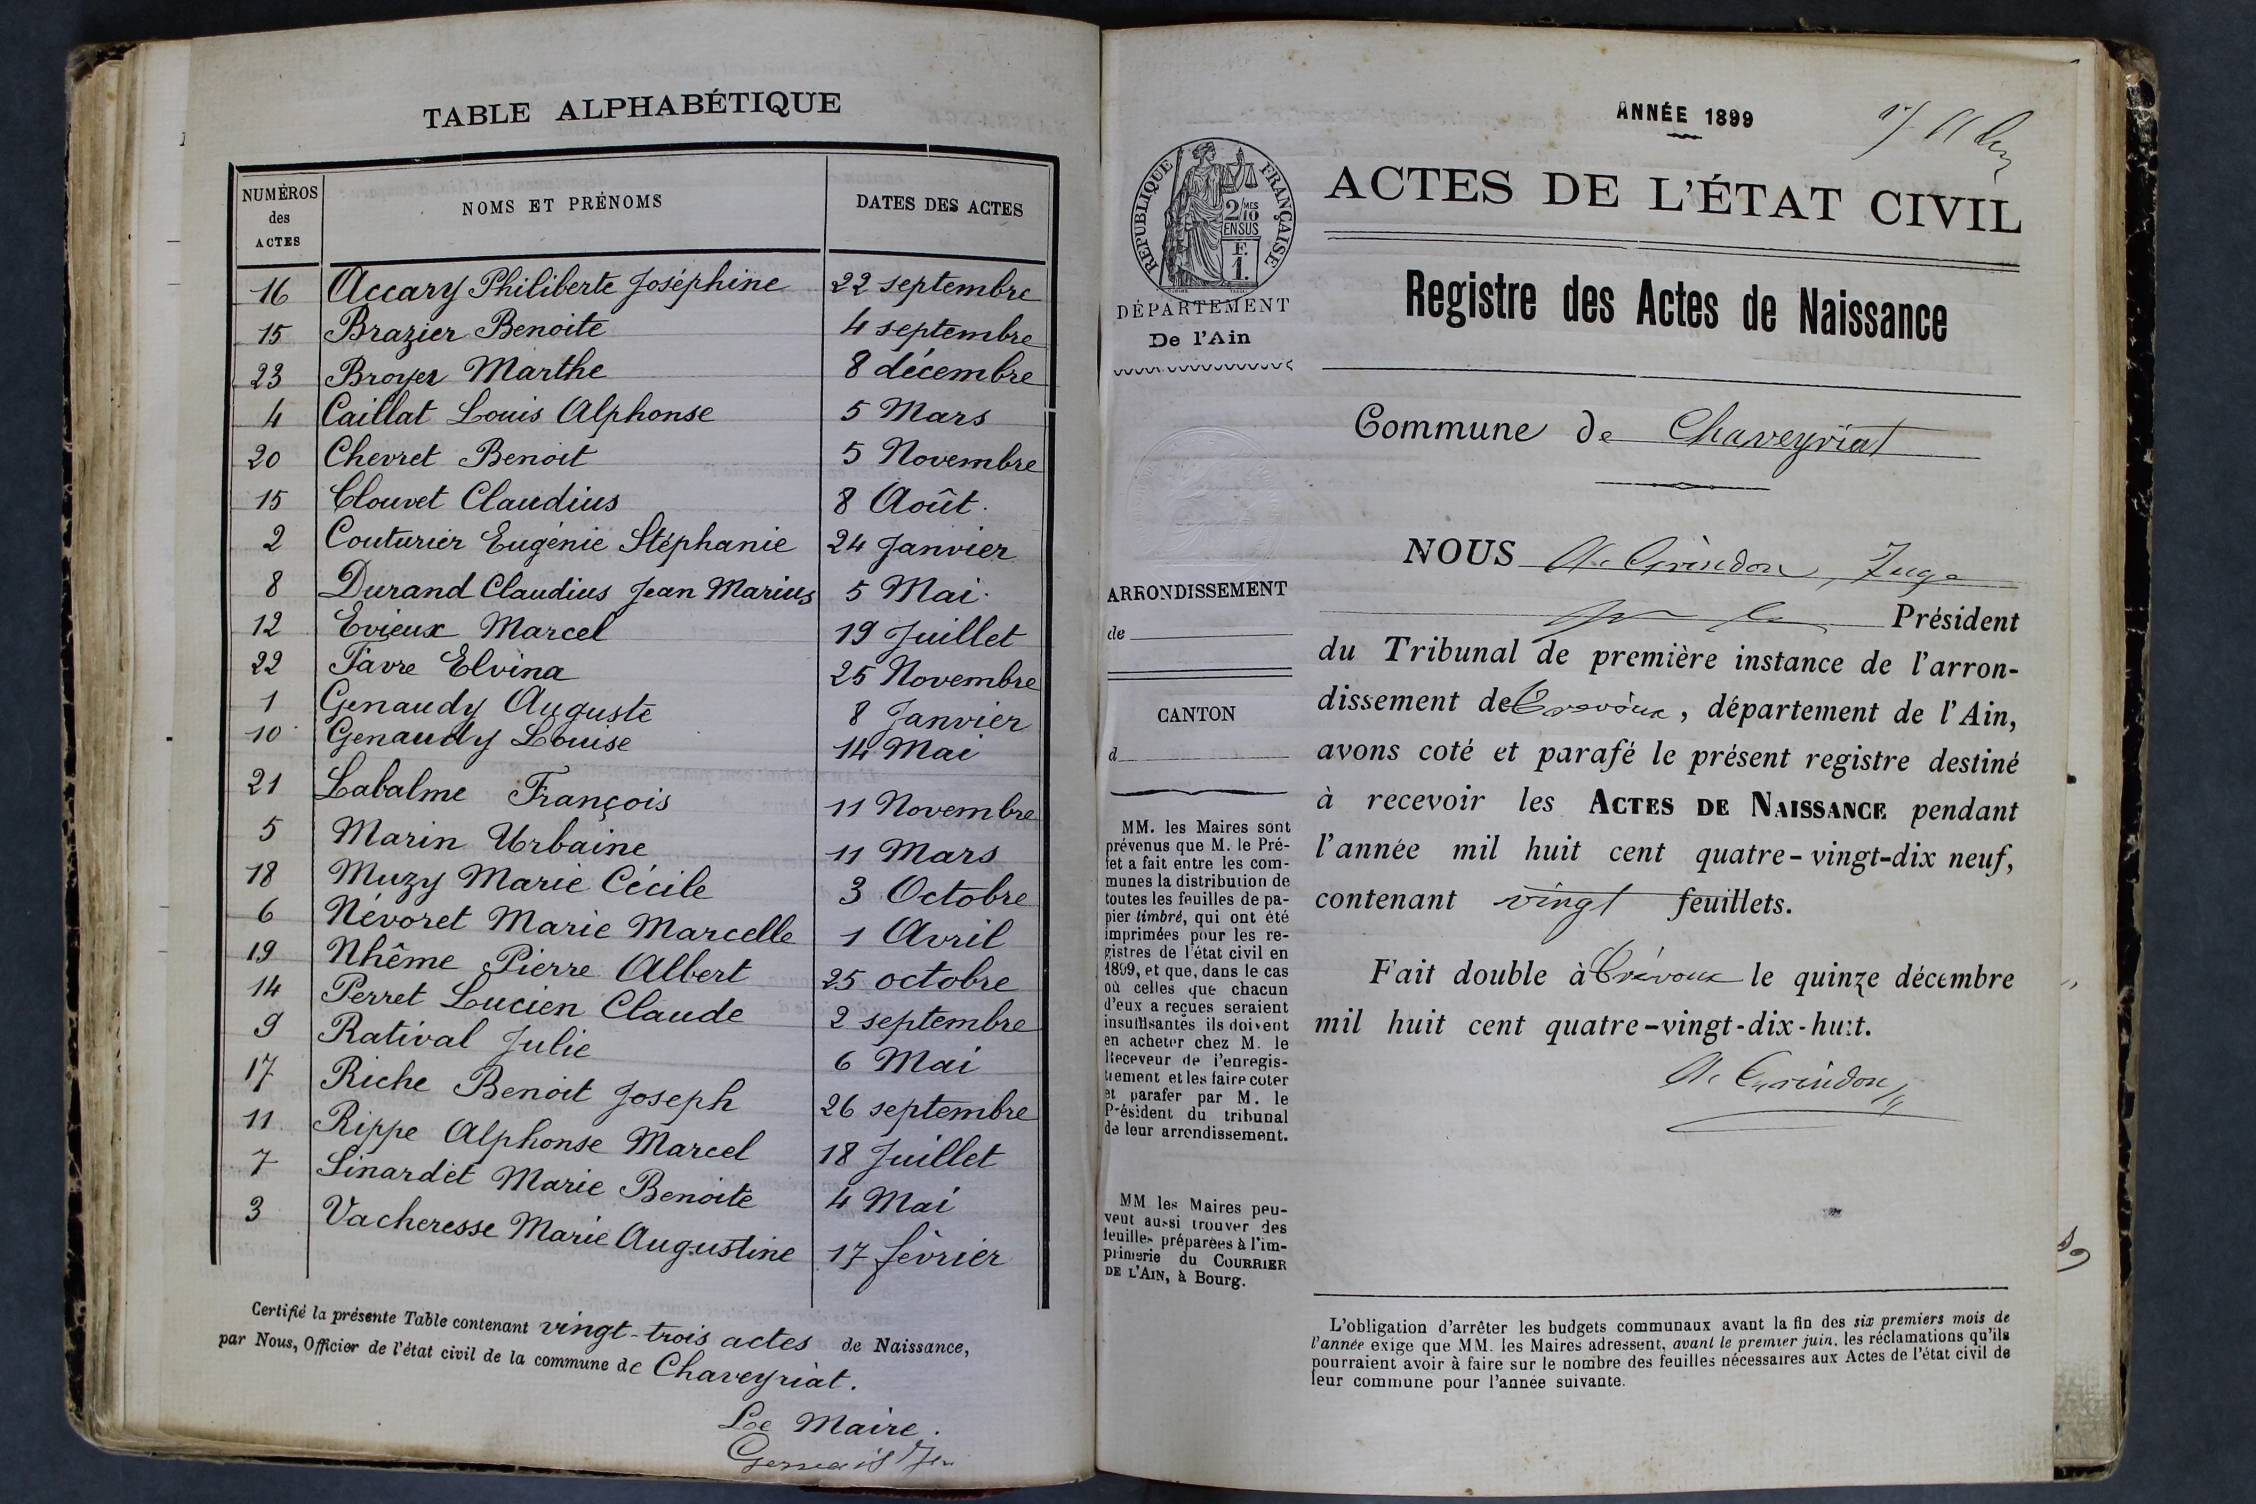 TABLE ALPHABÉTIQUE
NUMÉROS des ACTES | NOMS ET PRÉNOMS | DATES DES ACTES
16 Accary Philiberte Joséphine 22 septembre
15 Brazier Benoite 4 septembre
23 Broyer Marthe 8 décembre
4 Caillat Louis Alphonse 5 Mars
20 Chevret Benoit 5 Novembre
15 Clouvet Claudius 8 Août.
2 Couturier Eugénie Stéphanie 24 Janvier
8 Durand Claudius Jean Marius 5 Mai.
12 Evieux Marcel 19 Juillet
22 Favre Elvina 25 Novembre
1 Genaudy Auguste 8 Janvier
10 Genaudy Louise 14 Mai
21 Labalme François 11 Novembre
5 Marin Urbaine 11 Mars
18 Muzy Marie Cécile 3 Octobre
6 Névoret Marie Marcelle 1 Avril
19 Nhême Pierre Albert 25 octobre
14 Perret Lucien Claude 2 septembre
9 Ratival Julie 6 Mai
17 Riche Benoit Joseph 26 septembre
11 Rippe Alphonse Marcel 18 Juillet
7 Sinardet Marie Benoite 4 Mai
3 Vacheresse Marie Augustine 17 février
Certifié la présente Table contenant vingt-trois actes de Naissance,
par Nous, Officier de l'état civil de la commune de Chaveyriat.
Le Maire.
ANNÉE 1899
RÉPUBLIQUE FRANÇAISE
2/10 MES
EN SUS
F.
1.
DÉPARTEMENT
De l'Ain
ARRONDISSEMENT
de
CANTON
d
MM. les Maires sont
prévenus que M. le Pré-
fet a fait entre les com-
munes la distribution de
toutes les feuilles de pa-
pier timbré, qui ont été
imprimées pour les re-
gistres de l'état civil en
1899, et que, dans le cas
où celles que chacun
d'eux a reçues seraient
insuffisantes ils doivent
en acheter chez M. le
Receveur de l'enregis-
trement et les faire coter
et parafer par M. le
Président du tribunal
de leur arrondissement.
MM les Maires peu-
vent aussi trouver des
feuilles préparées à l'im-
primerie du COURRIER
DE L'AIN, à Bourg.
ACTES DE L'ÉTAT CIVIL
Registre des Actes de Naissance
Commune de Chaveyriat
NOUS A. Grindon, Juge
Président
du Tribunal de première instance de l'arron-
dissement de Trévoux, département de l'Ain,
avons coté et parafé le présent registre destiné
à recevoir les ACTES DE NAISSANCE pendant
l'année mil huit cent quatre-vingt-dix neuf,
contenant vingt feuillets.
Fait double à Trévoux le quinze décembre
mil huit cent quatre-vingt-dix-huit.
A. Grindon
L'obligation d'arrêter les budgets communaux avant la fin des six premiers mois de
l'année exige que MM. les Maires adressent, avant le premier juin, les réclamations qu'ils
pourraient avoir à faire sur le nombre des feuilles nécessaires aux Actes de l'état civil de
leur commune pour l'année suivante.